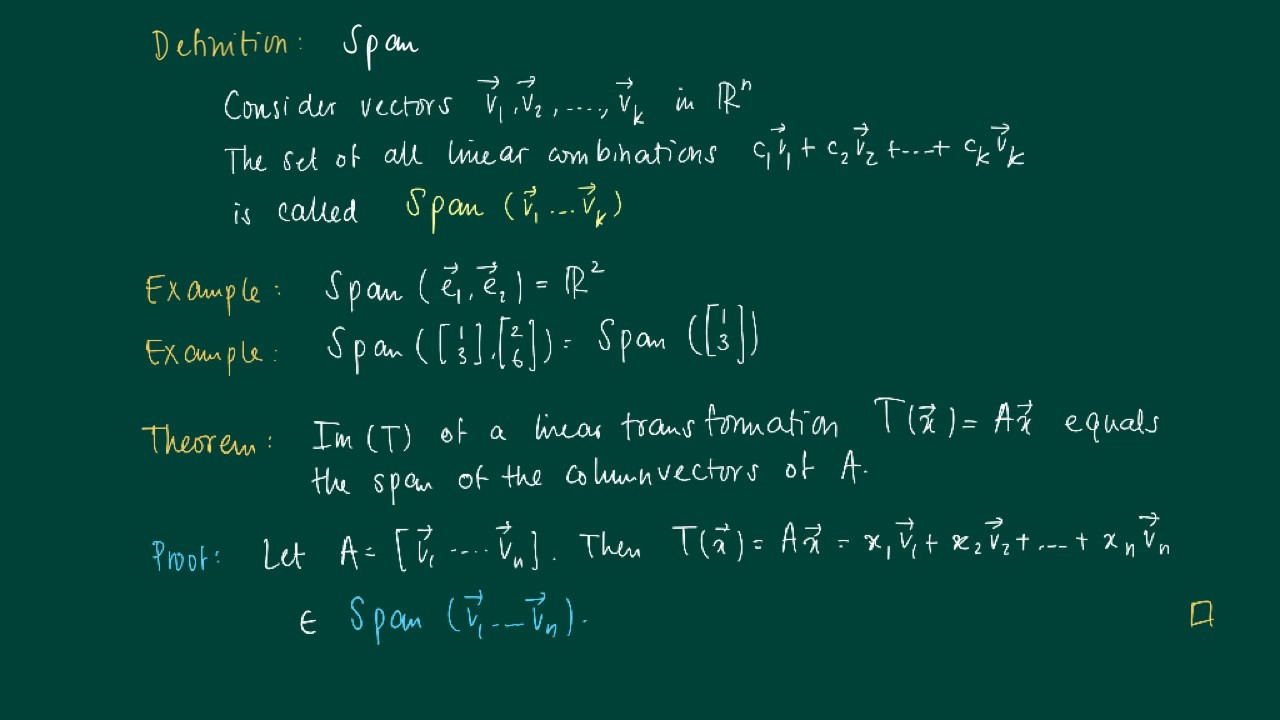 Definition: Span
Consider vectors v⃗₁, v⃗₂, ...., v⃗ₖ in ℝⁿ
The set of all linear combinations c₁v⃗₁ + c₂v⃗₂ + ... + cₖv⃗ₖ
is called Span (v⃗₁ ... v⃗ₖ)
Example: Span (e⃗₁, e⃗₂) = ℝ²
Example: Span ([1 3], [2 6]) = Span ([1 3])
Theorem: Im (T) of a linear transformation T(x⃗) = Ax⃗ equals
the span of the columnvectors of A.
Proof: Let A = [v⃗₁ .... v⃗ₙ]. Then T(x⃗) = Ax⃗ = x₁v⃗₁ + x₂v⃗₂ + ... + xₙv⃗ₙ
∈ Span (v⃗₁ ... v⃗ₙ). □